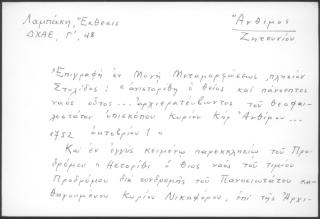 Λαμπάκη, Ἔκθεσις
ΔΧΑΕ, Γ', 48
Ἄνθιμος
Ζητουνίου
Ἐπιγραφὴ ἐν Μονῇ Μεταμορφώσεως, πλησίον
Στυλίδος: « ἀνιστορίθη ὁ θεῖος καὶ πάνσεπτος
ναὸς οὗτος... ἀρχιερατεύωντος τοῦ θεοφιλ-
λεστάτου ἐπισκόπου Κυρίου Κὺρ Ἀνθίμου...
1752 ὀκτοβρίου 1 »
Καὶ ἐν ἐγγὺς κειμένῳ παρεκκλησίῳ τοῦ Προ-
δρόμου « ἡστορίθι ὁ θῖος ναὸς τοῦ τιμίου
Προδρόμου διὰ συνδρομῆς τοῦ Πανοσιωτάτου καθ
ηγουμένου Κυρίου Νικηφόρου, ἐπὶ τῆς Ἀρχι-